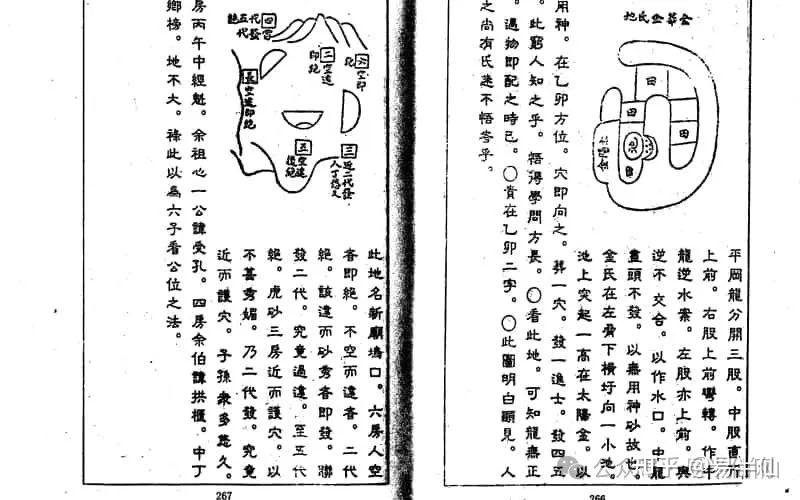 金華金氏地
田
田
田
池
田
太陽金
平岡龍分開三股。中股直
上前。右股上前彎轉。作
龍逆水案。左股亦上前。與
逆不交合。以作水口。中龍
盡頭不發。以無用神砂故也。
金氏在左脅下橫圩向一小池。
池上突起一高在太陽金。以
用神。在乙卯方位。穴即向之。葬一穴。發一進士。發四五
。此窮人知之乎。悟得學問方長。〇看此地。可知龍無正
。遇物即配之時已。〇貴在乙卯二字。〇此圖明白顯見。人
之尚有迷不悟者乎。
266
六空即絕
二空遠即絕
四發二代五代絕
長空遠即絕
五空遠後絕
三近二代發人丁悠久
此地名新廟塢口。六房人空
者即絕。不空而遠者。二代
絕。該遠而砂秀者即發。聯
發二代。究竟過遠。至五代
絕。虎砂三房近而護穴。以
不甚秀媚。乃二代發。究竟
近而護穴。子孫衆多悠久。
房丙午中經魁。余祖心一公諱受孔。四房余伯諱拱樞。中丁
鄉榜。地不大。祿此以爲六子看公位之法。
267
公众号
知乎 @易伴仙